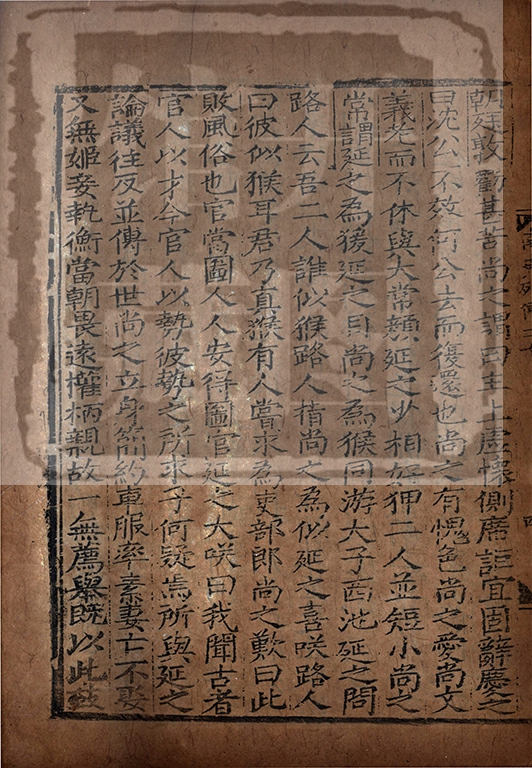 朝廷敦勸甚苦尚之謂曰主上虛懷側席詎宜固辭慶之
曰沈公不效何公去而復還也尚之有愧色尚之愛尚文
義老而不休與太常顏延之少相好狎二人並短小尚之
常謂延之為猨延之目尚之為猴同游太子西池延之問
路人云吾二人誰似猴路人指尚之為似延之喜咲路人
曰彼似猴耳君乃真猴有人嘗求為吏部郎尚之歎曰此
敗風俗也官當圖人人安得圖官延之大咲曰我聞古者
官人以才今官人以勢彼勢之所求子何疑焉所與延之
論議往反並傳於世尚之立身簡約車服率素妻亡不娶
又無姬妾執衡當朝畏遠權柄親故一無薦舉既以此致